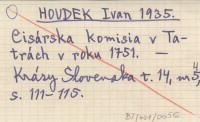 HOUDEK Ivan 1935.
Cisárska komisia v Ta-
trách v roku 1751. —
Krásy Slovenska t. 14, nr 4/5,
s. 111-115.